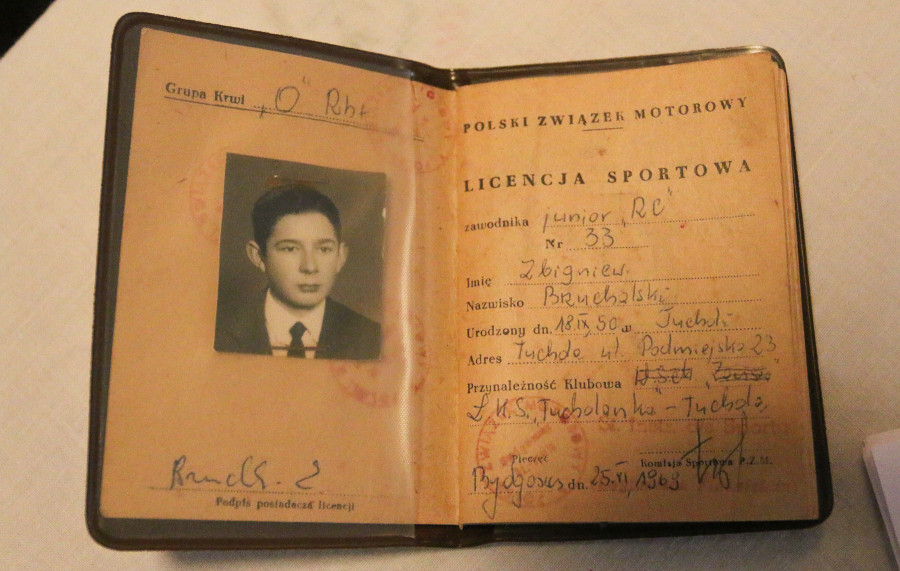 Grupa Krwi „O" Rh+
Podpis posiadacza licencji
POLSKI ZWIĄZEK MOTOROWY
LICENCJA SPORTOWA
zawodnika junior „RC"
Nr 33
Imię Zbigniew
Nazwisko Bruchalski
Urodzony dn. 18.IX.50 w Tucholi
Adres Tuchola ul. Podmiejska 23
Przynależność Klubowa
L.K.S. „Tucholanka" - Tuchola
Pieczęć
Komisja Sportowa P.Z.M.
Bydgoszcz dn. 25.VI.1969